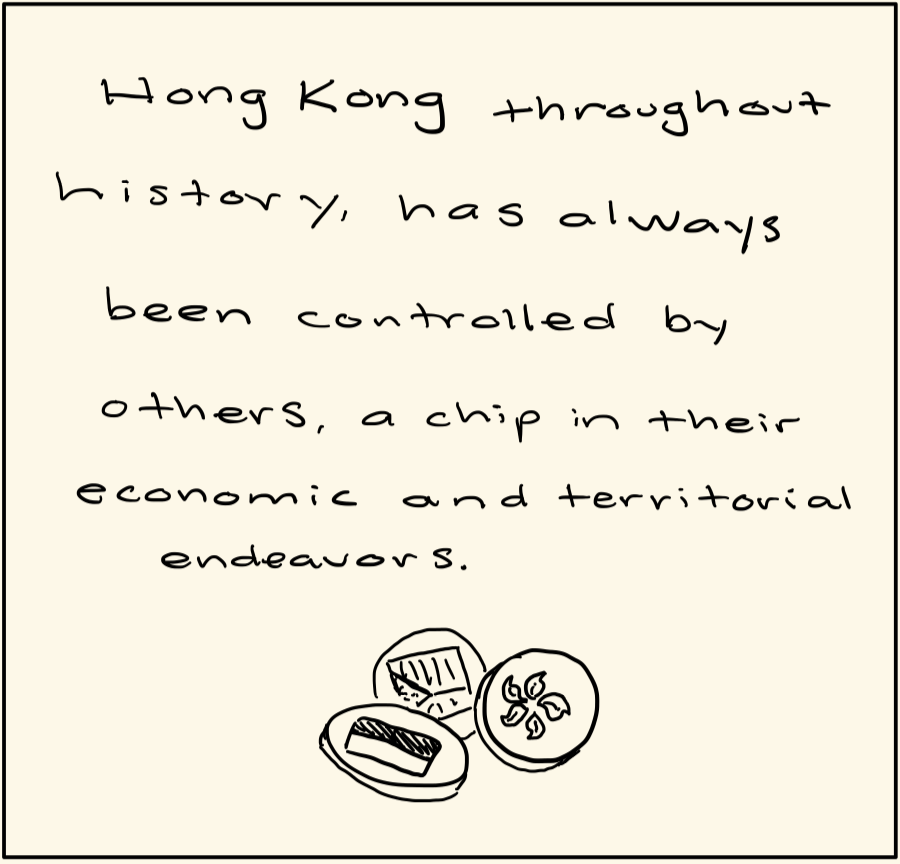 Hong Kong throughout
history, has always
been controlled by
others, a chip in their
economic and territorial
endeavors.